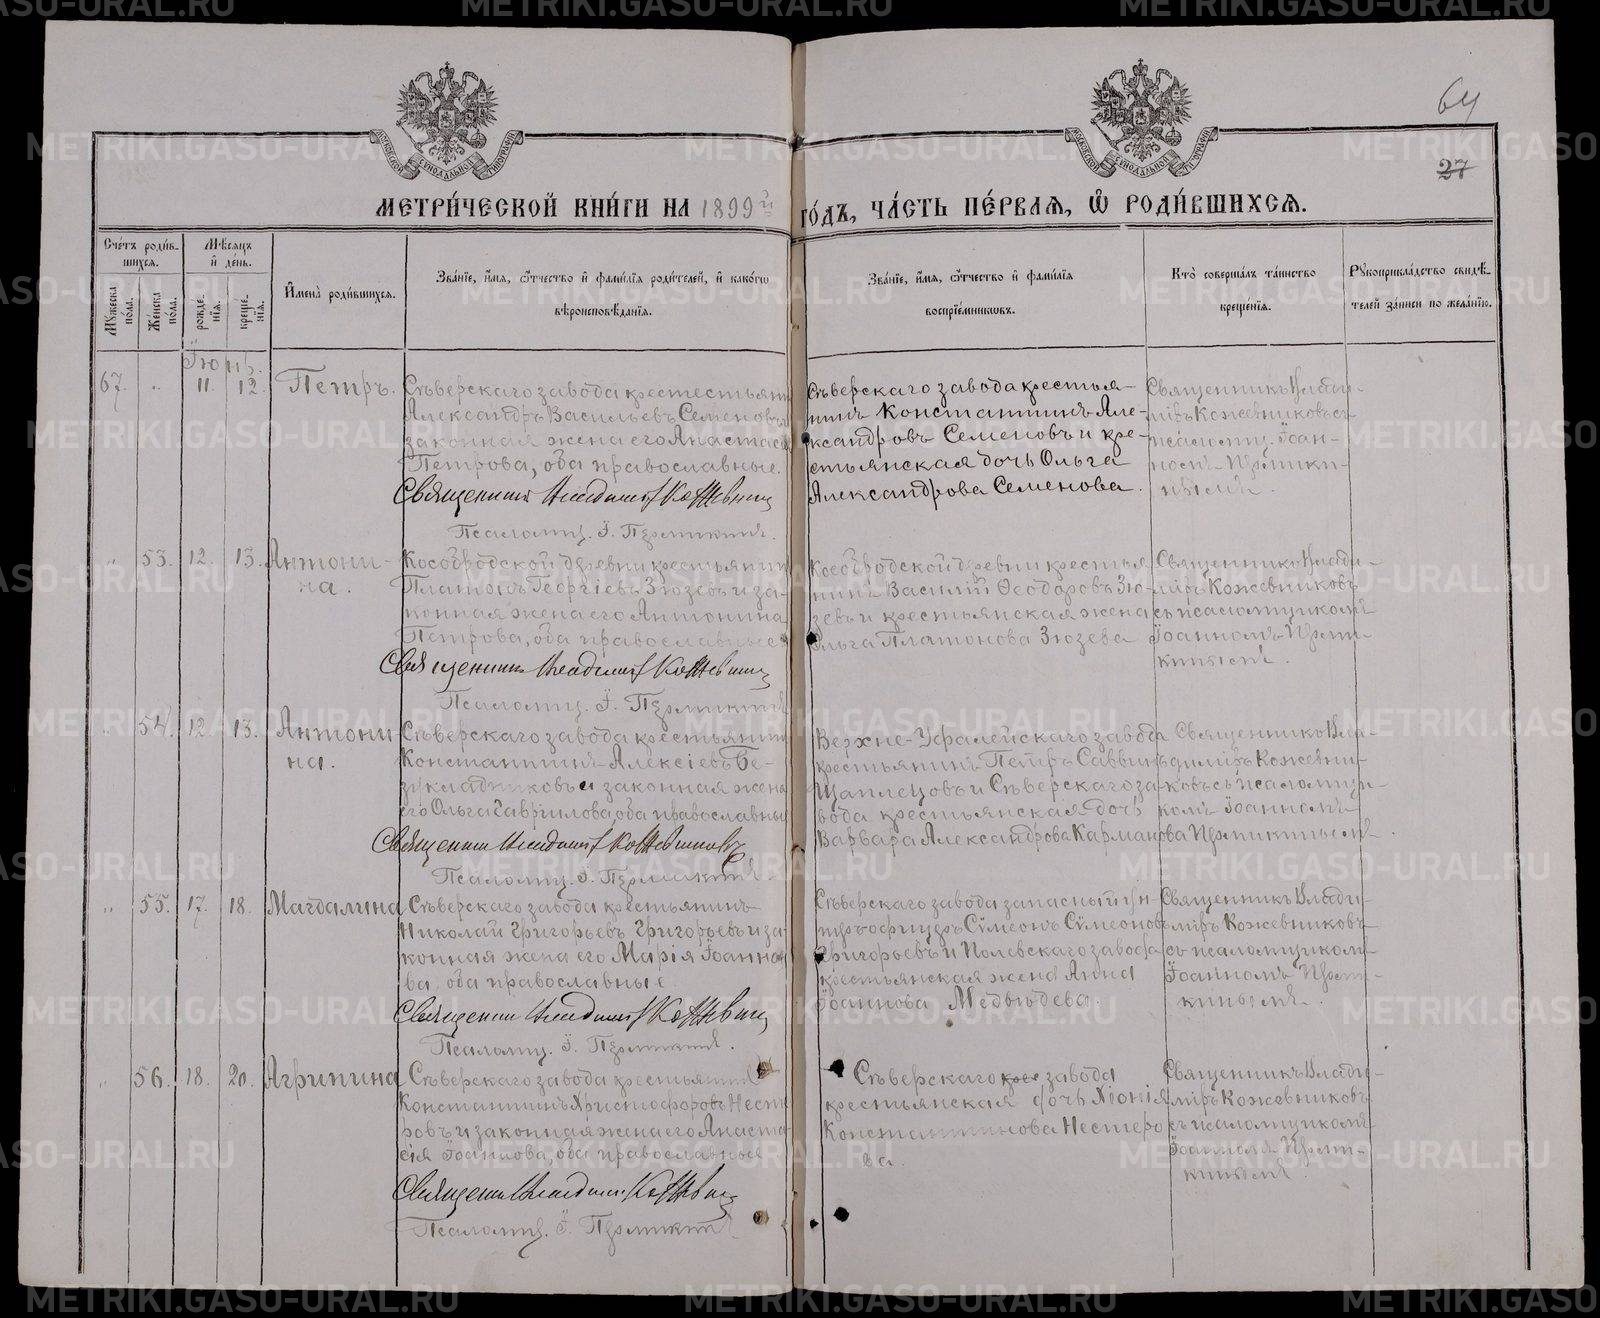 64
27
МЕТРИЧЕСКОЙ КНИГИ НА 1899й ГОДЪ, ЧАСТЬ ПЕРВАЯ, Ѡ РОДИВШИХСЯ.
Счетъ родившихся.
Мужеска пола.
Женска пола.
Мѣсяцъ и день.
рожденія.
крещенія.
Имена родившихся.
Званіе, имя, отчество и фамилія родителей, и какогѡ вѣроисповѣданія.
Званіе, имя, отчество и фамилія воспріемниковъ.
Кто совершалъ таинство крещенія.
Рукоприкладство свидѣтелей записи по желанію.
67. „ 11. 12. Петръ.
Сѣверскаго завода
Александръ Васильевъ Семеновъ и
законная жена его Анастасія
Петрова, оба православные.
Священникъ Владимір Кожевник
Псаломщ. І. Пермикинъ.
Сѣверскаго завода крестья-
нинъ Константинъ Але-
ксандровъ Семеновъ и кре-
стьянская дочь Ольга
Александрова Семенова.
Священникъ Влади-
міръ Кожевниковъ съ
псаломщ. Іоан-
номъ Перми-
кинымъ.
„ 53. 12. 13. Антони-
на.
Кособродской деревни крестьянинъ
Платонъ Георгіевъ Зюзевъ и за-
конная жена его Антонина
Петрова, оба православные
Священникъ Владимір Кожевник
Псаломщ. І. Пермикинъ
Кособродской деревни крестья
нинъ Василій Ѳеодоровъ Зю-
зевъ и крестьянская жена
Ольга Платонова Зюзева
Священникъ Влади-
міръ Кожевниковъ
съ псаломщикомъ
Іоанномъ Перми-
кинымъ.
„ 54. 12. 13. Антони
на.
Сѣверскаго завода крестьянинъ
Константинъ Алексіевъ Бе-
зукладниковъ и законная жена
его Ольга Гаврилова, оба православны
Священник Владимір Кожевниковъ
Псаломщ. І. Пермикинъ.
Верхне-Уфалейскаго завода
крестьянинъ Петръ Саввинъ
Щаплецовъ и Сѣверскаго за-
вода крестьянская дочь
Варвара Александрова Карманова
Священникъ Вла-
диміръ Кожевни-
ковъ съ псаломщи-
комъ Іоанномъ
Пермикинымъ.
„ 55. 17. 18. Магдалина
Сѣверскаго завода крестьянинъ
Николай Григорьевъ Григорьевъ и за-
конная жена его Марія Іоанно-
ва, оба православные.
Священник Владимір Кожевник
Псаломщ. І. Пермикинъ.
Сѣверскаго завода запасный ун-
теръ-офицеръ Сѵмеонъ Сѵмеоновъ
Григорьевъ и Полевскаго завода
крестьянская жена Анна
Іоаннова Медвѣдева.
Священникъ Влади-
міръ Кожевниковъ
съ псаломщикомъ
Іоанномъ Перми-
кинымъ.
„ 56. 18. 20. Агрипина
Сѣверскаго завода крестьянинъ
Константинъ Христофоровъ Несте
ровъ и законная жена его Анаста-
сія Іоаннова, оба православныя
Священн Владимір. Кожевник
Псаломщ. І. Пермикинъ
Сѣверскаго завода
крестьянская дочь Хіонія
Константинова Нестеро
ва.
Священникъ Влади-
міръ Кожевниковъ
съ псаломщикомъ
Іоанномъ Перми-
кинымъ.
METRIKI.GASO-URAL.RU